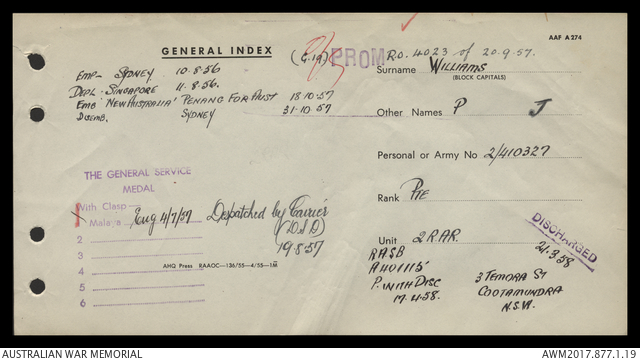 AAF A 274
GENERAL INDEX
PROM
R.O. 4023 of 20.9.57.
Surname WILLIAMS
(BLOCK CAPITALS)
EMP- SYDNEY 10.8.56
DEPL. SINGAPORE 11.8.56.
EMB 'NEW AUSTRALIA' PENANG FOR AUST 18.10.57
DISEMB. SYDNEY 31.10.57
Other Names P J
Personal or Army No 2/410327
Rank Pte
Unit 2 R.A.R.
DISCHARGED
21.3.58
THE GENERAL SERVICE
MEDAL
With Clasp
1 Malaya Eng 4/7/57 Despatched by Courier
2
3
19.8.57
4
5
6
AHQ Press RAAOC—136/55—4/55—1M
RASB
A1401115
P. WITH DISC
17.4.58.
3 TEMORA ST
COOTAMUNDRA
N.S.W.
AUSTRALIAN WAR MEMORIAL
AWM2017.877.1.19